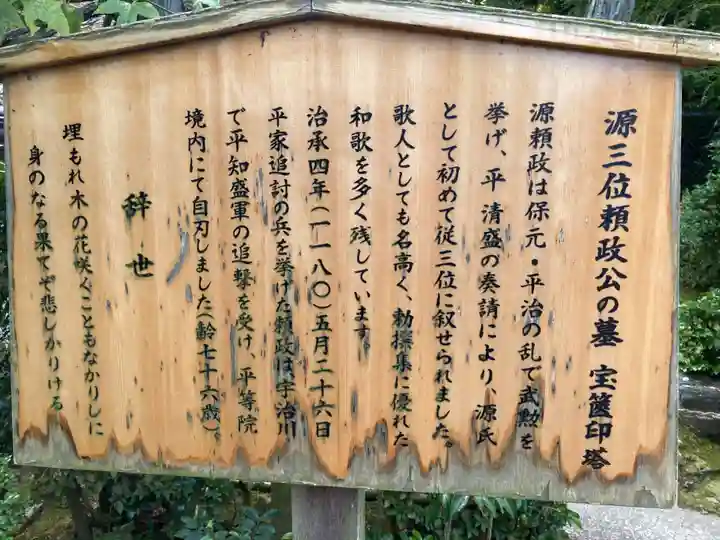 源三位頼政公の墓 宝篋印塔
源頼政は保元・平治の乱で武勲を
挙げ、平 清盛の奏請により、源氏
として初めて従三位に叙せられました。
歌人としても名高く、勅撰集に優れた
和歌を多く残しています。
治承四年(一一八〇)五月二十六日
平家追討の兵を挙げた頼政は宇治川
で平知盛軍の追撃を受け、平等院
境内にて自刃しました(齢七十六歳)。
辞世
埋もれ木の花咲くこともなかりしに
身のなる果てぞ悲しかりける